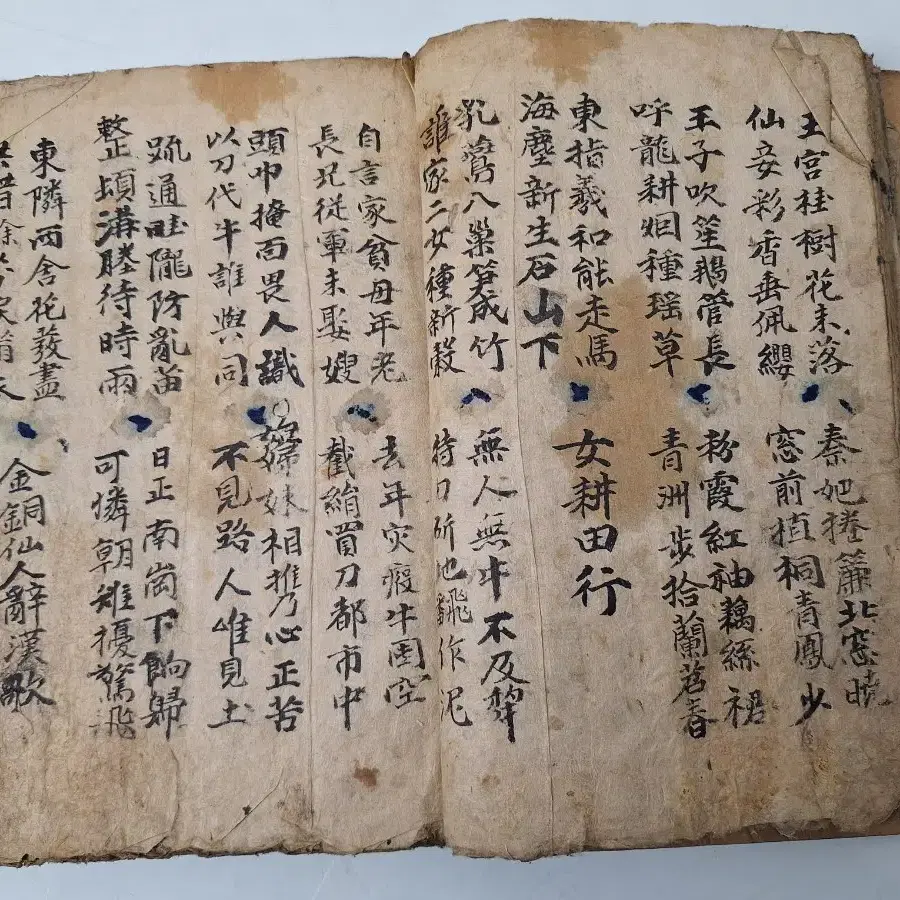 玉宮桂樹花未落
仙妾彩香垂佩纓
秦妃捲簾北窓曉
窓前植桐青鳳少
王子吹笙鵝管長
呼龍耕烟種瑤草
粉霞紅袖藕絲裙
青洲步拾蘭苕春
東指羲和能走馬
海塵新生石山下
女耕田行
乳鷰入巢笋成竹
誰家二女種新穀
無人無牛不及犂
持刀斫地飜作泥
自言家貧母年老
長兄從軍未娶嫂
去年灾疫牛囤空
截絹買刀都市中
頭巾掩面畏人識
以刀代牛誰與同
姊妹相携心正苦
不見路人唯見土
疏通畦隴防亂苗
整頓溝塍待時雨
日正南崗下餉歸
可憐朝雉擾驚飛
東隣西舍花發盡
金銅仙人辭漢歌